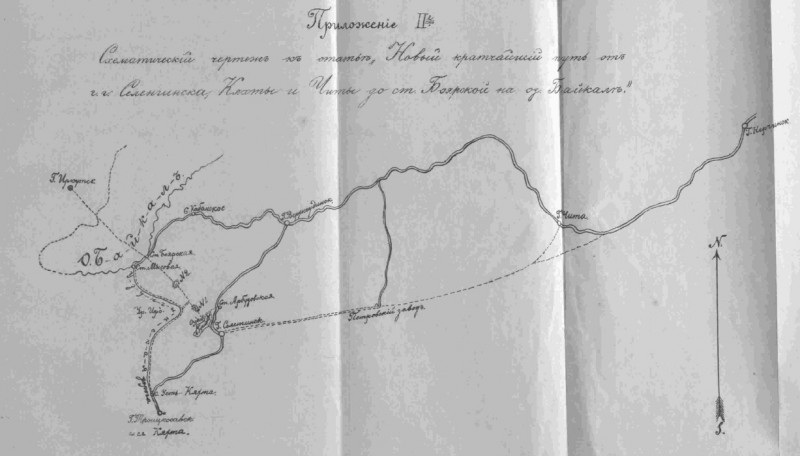 Приложеніе II-е
Схематическій чертежъ къ статьѣ, „Новый кратчайшій путь отъ
г.г. Селенгинска, Кяхты и Читы до ст. Боярской на оз. Байкалѣ."
Г. Нерчинск
Г. Иркутскъ
О. Байкалъ
С. Кабанское
Г. Верхнеудинск
Г. Чита
N.
Ст. Боярская
Ст. Мысовая
№ 2
№ 1
Ст. Арбузовская
Г. Селенгинск
Петровскій заводъ
Усть-Кяхта
Г. Троицкосавск
Кяхта.
S.